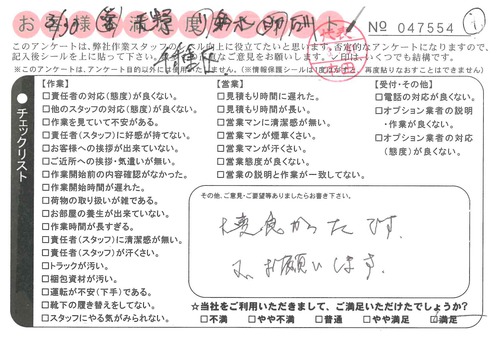 お客様満足度アンケート
No 047554 ①
このアンケートは、弊社作業スタッフのレベル向上に役立てたいと思います。否定的なアンケートになりますので、
記入後シールを上に貼って下さい。ご意見をお願いします。✓印は、いくつでも結構です。
※このアンケートは、アンケート目的以外には使用いたしません。(※情報保護シールは1度はがすと、再度貼りなおすことはできません)
チェックリスト
【作業】
□責任者の対応(態度)が良くない。
□他のスタッフの対応(態度)が良くない。
□作業を見ていて不安がある。
□責任者(スタッフ)に好感が持てない。
□お客様への挨拶が出来ていない。
□ご近所への挨拶・気遣いが無い。
□作業開始前の内容確認がなかった。
□作業開始時間が遅れた。
□荷物の取り扱いが雑である。
□お部屋の養生が出来ていない。
□作業時間が長すぎる。
□責任者(スタッフ)に清潔感が無い。
□責任者(スタッフ)が汗くさい。
□トラックが汚い。
□梱包資材が汚い。
□運転が不安(下手)である。
□靴下の履き替えをしてない。
□スタッフにやる気がみられない。
【営業】
□見積もり時間に遅れた。
□見積もり時間が長い。
□営業マンに清潔感が無い。
□営業マンが煙草くさい。
□営業マンが汗くさい。
□営業態度が良くない。
□営業の説明と作業が一致してない。
【受付・その他】
□電話の対応が良くない。
□オプション業者の説明
・作業が良くない。
□オプション業者の対応
(態度)が良くない。
その他、ご意見・ご要望等ありましたらお書き下さい。
大変良かったです。
又お願いします。
☆当社をご利用いただきまして、ご満足いただけたでしょうか?
□不満 □やや不満 □普通 □やや満足 ☑満足